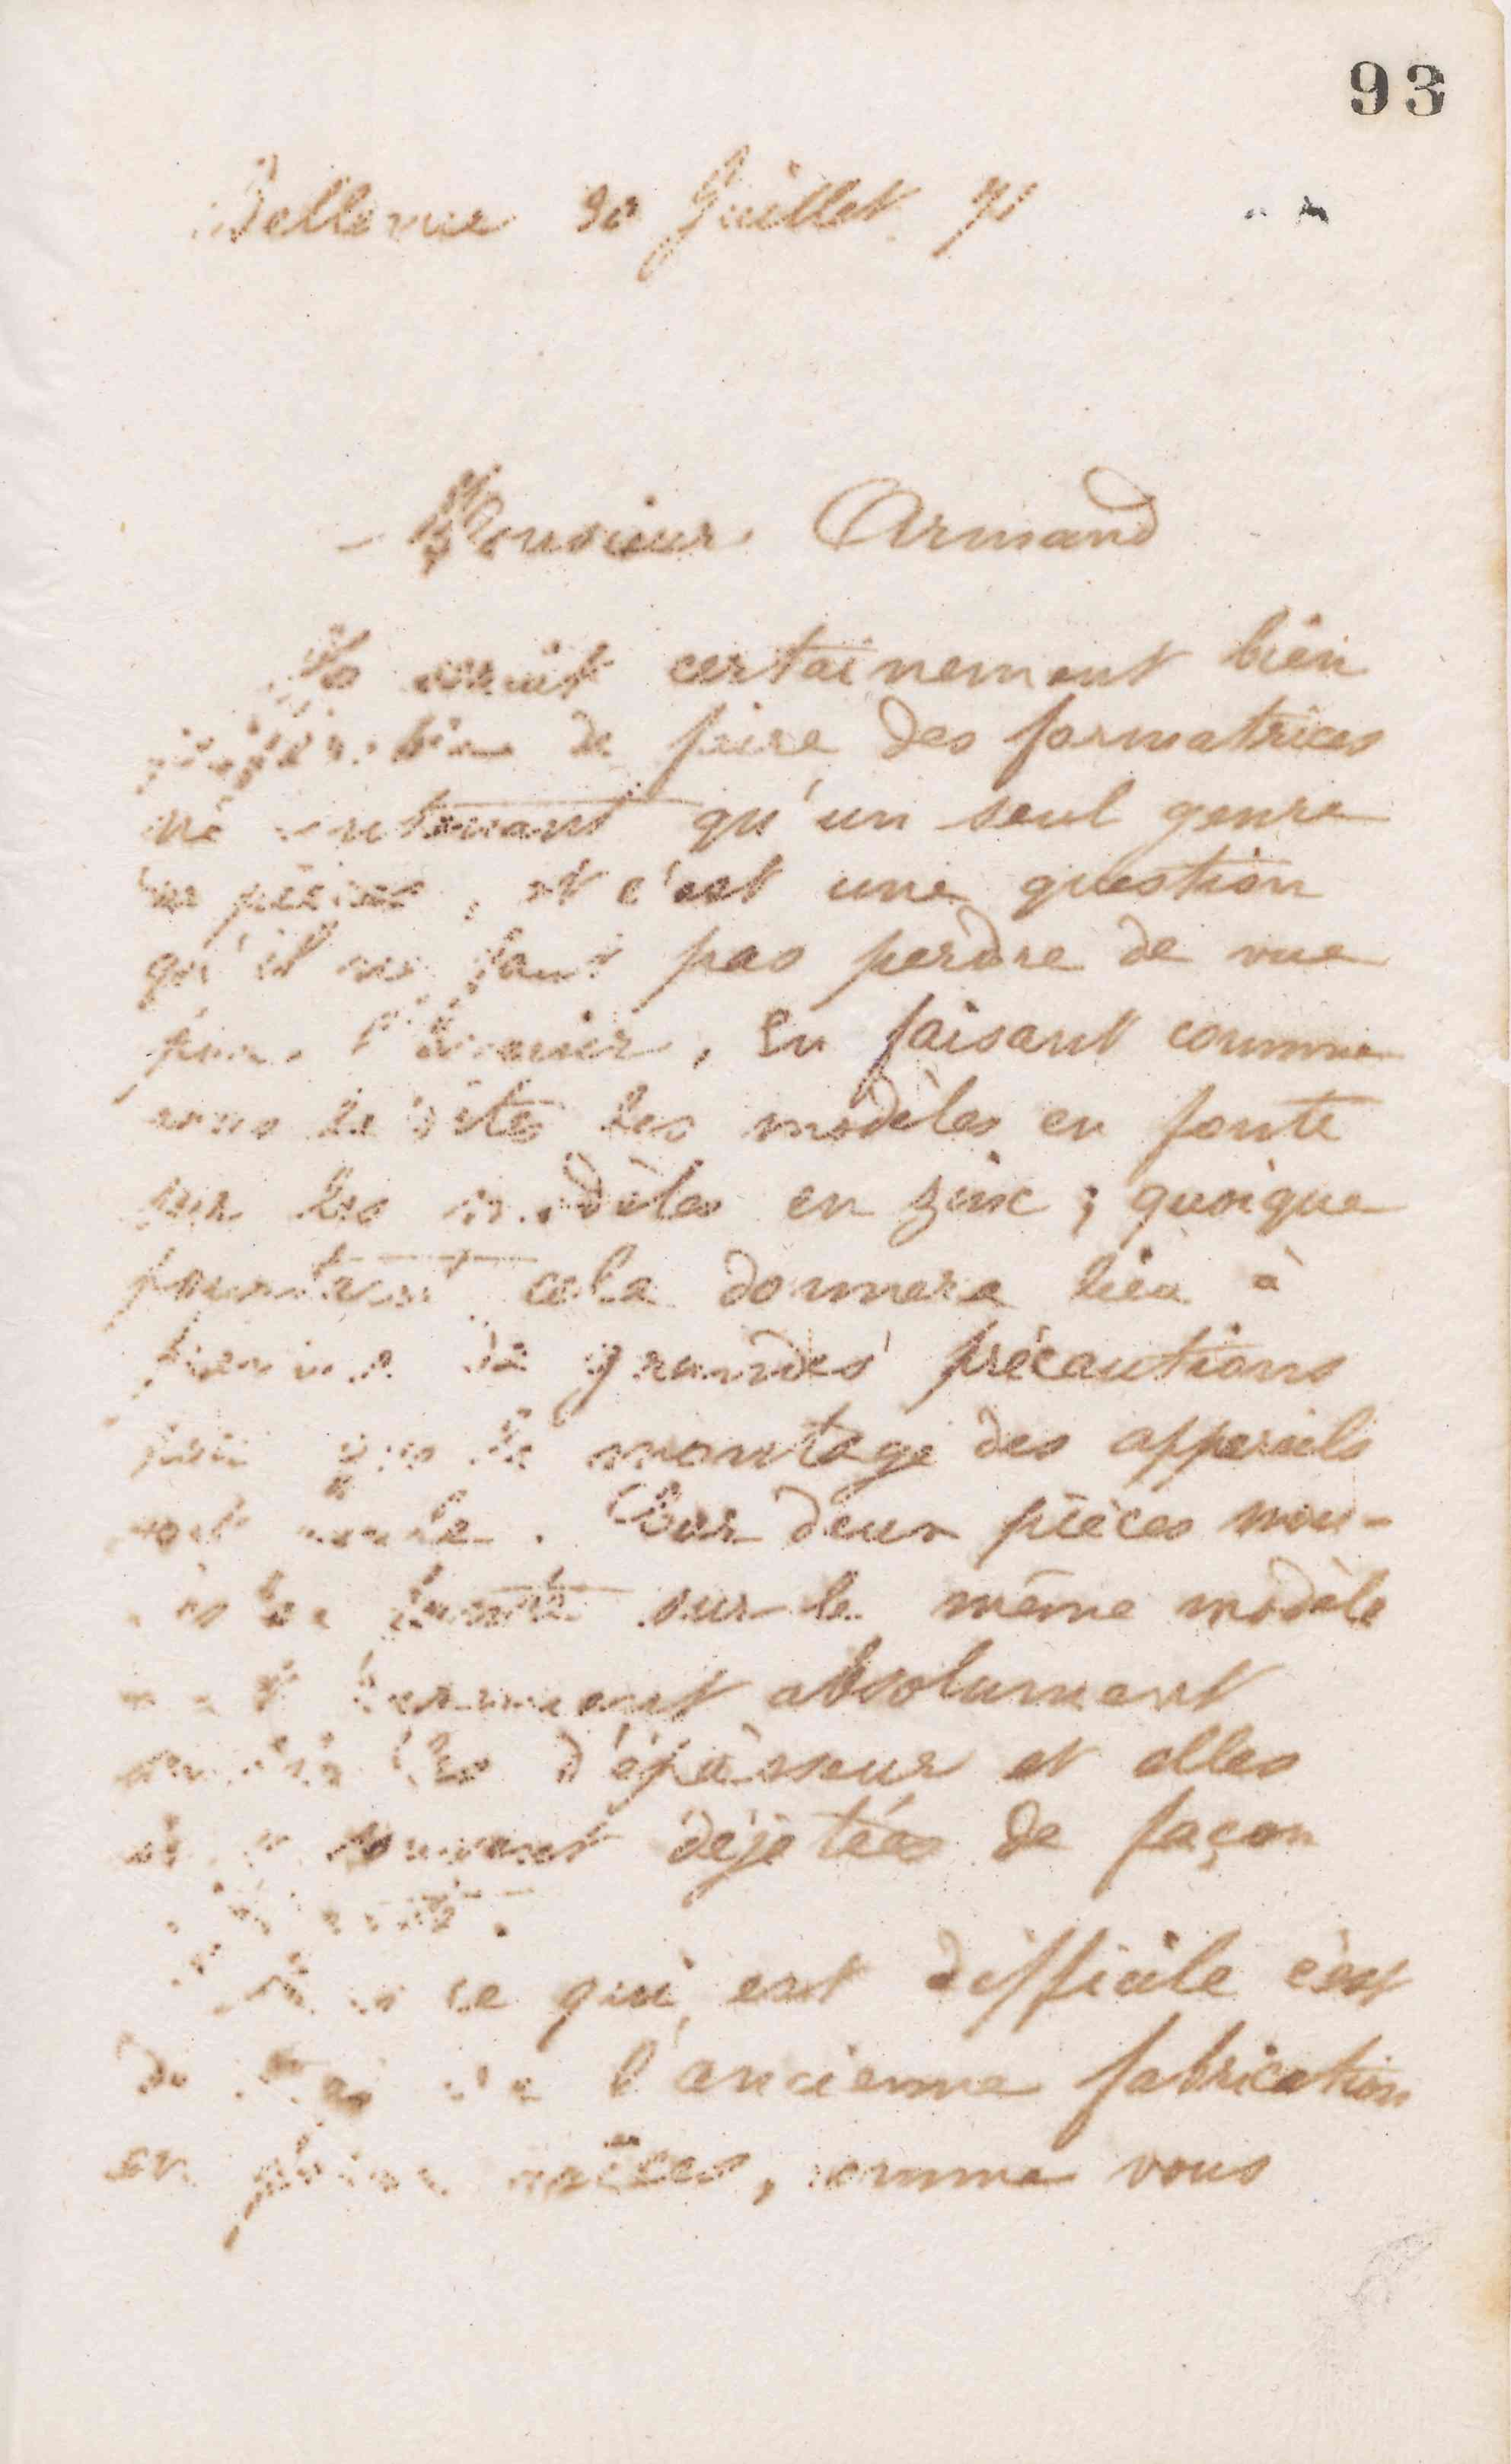 93
Bellevue 30 Juillet 71
Monsieur Armand
Il serait certainement bien
préférable de faire des formatrices
ne contenant qu'un seul genre
de pièces, et c'est une question
qu'il ne faut pas perdre de vue
pour l'avenir, en faisant comme
vous le dites les modèles en fonte
sur les modèles en zinc ; quoique
pourtant cela donnera lieu à
prendre de grandes précautions
pour que le montage des appareils
soit . Car deux pièces mou-
lées sur le même modèle
absolument
d'épaisseur et elles
souvent déjetées de façon

ce qui est difficile c'est
de l'ancienne fabrication
en pièces, comme vous